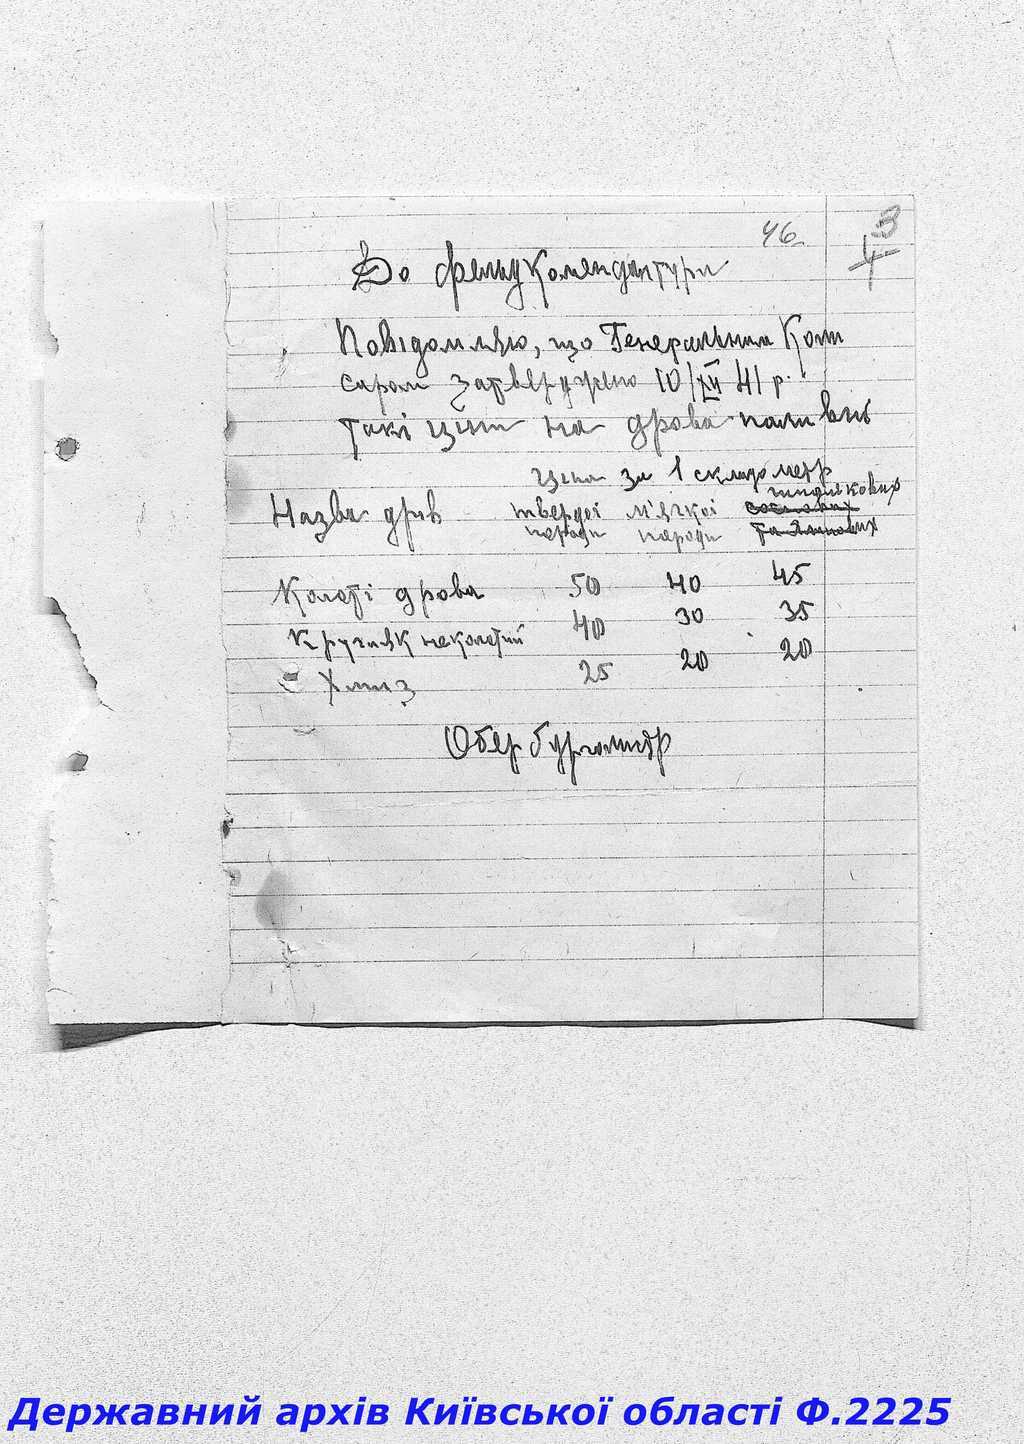 46
3
До фельдкомендантури
Повідомляю, що Генеральним Комі
саром затверджено 10/XII 41 р.
такі ціни на дрова паливні
Ціна за 1 складометр
Назва дрів твердої породи м'ягкої породи шпилькових соснових та ялинових
Колоті дрова 50 40 45
Кругляк неколотий 40 30 35
Хмиз 25 20 20
Обербургомістр
Державний архів Київської області Ф.2225